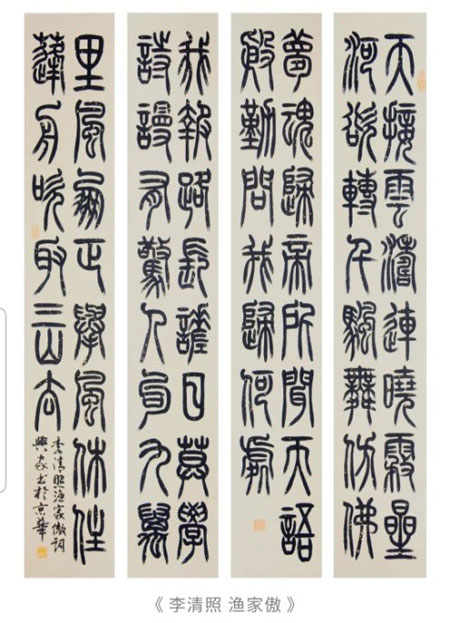 天接雲濤連曉霧星
河欲轉千颿舞仿佛
夢魂歸帝所聞天語
殷勤問我歸何處
我報路長嗟日暮學
詩謾有驚人句九萬
里風鵬正舉風休住
蓬舟吹取三山去
李清照漁家傲詞
興家书於京華
《 李清照 渔家傲 》